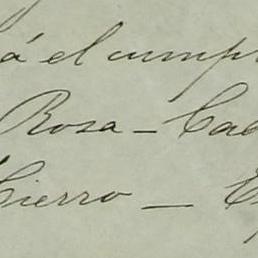 á el cump
Rosa - Ca
Cierro - E